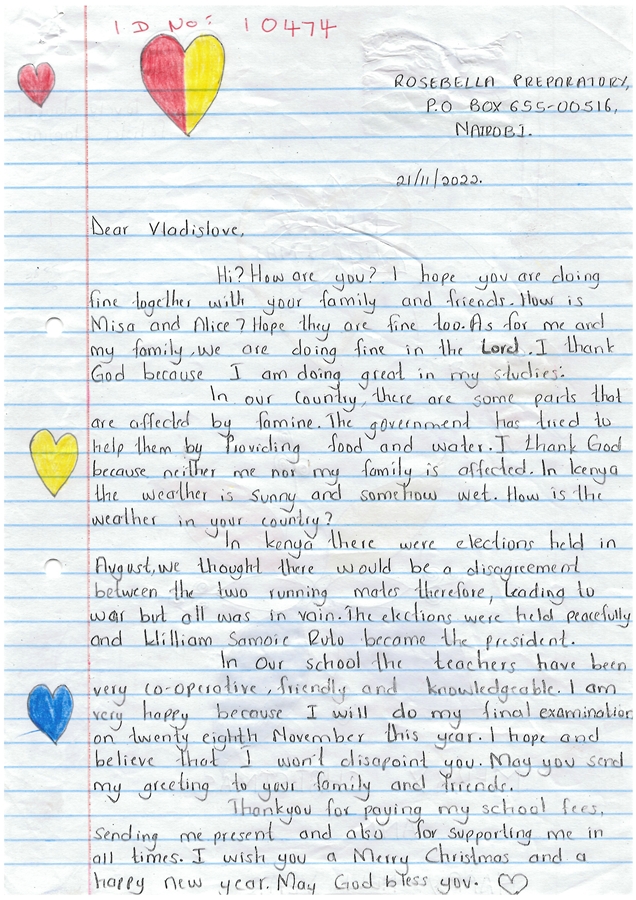 ID No: 10474
ROSEBELLA PREPARATORY,
P.O BOX 655-00516,
NAIROBI.
21/11/2022.
Dear Vladislove,
Hi? How are you? I hope you are doing
fine together with your family and friends. How is
Misa and Alice? Hope they are fine too. As for me and
my family, we are doing fine in the Lord. I thank
God because I am doing great in my studies.
In our country, there are some parts that
are affected by famine. The government has tried to
help them by Providing food and water. I thank God
because neither me nor my family is affected. In kenya
the weather is sunny and somehow wet. How is the
weather in your country?
In kenya there were elections held in
August, we thought there would be a disagreement
between the two running mates therefore, leading to
war but all was in vain. The elections were held peacefully
and William Samoie Ruto became the president.
In our school the teachers have been
very co-operative, friendly and knowledgeable. I am
very happy because I will do my final examination
on twenty eighth November this year. I hope and
believe that I won't disapoint you. May you send
my greeting to your family and friends.
Thankyou for paying my school fees,
sending me present and also for supporting me in
all times. I wish you a Merry Christmas and a
happy new year. May God bless you.